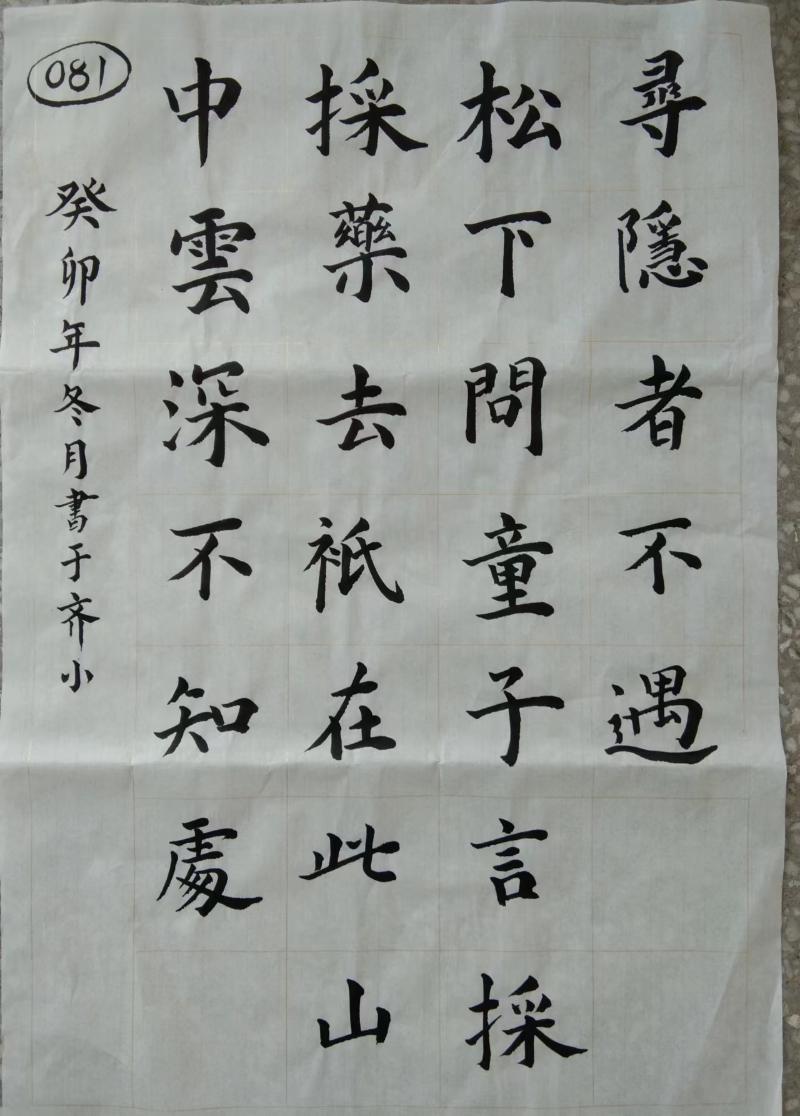 尋隱者不遇
松下問童子言採
採藥去祇在此山
中雲深不知處
癸卯年冬月書于齐小
081